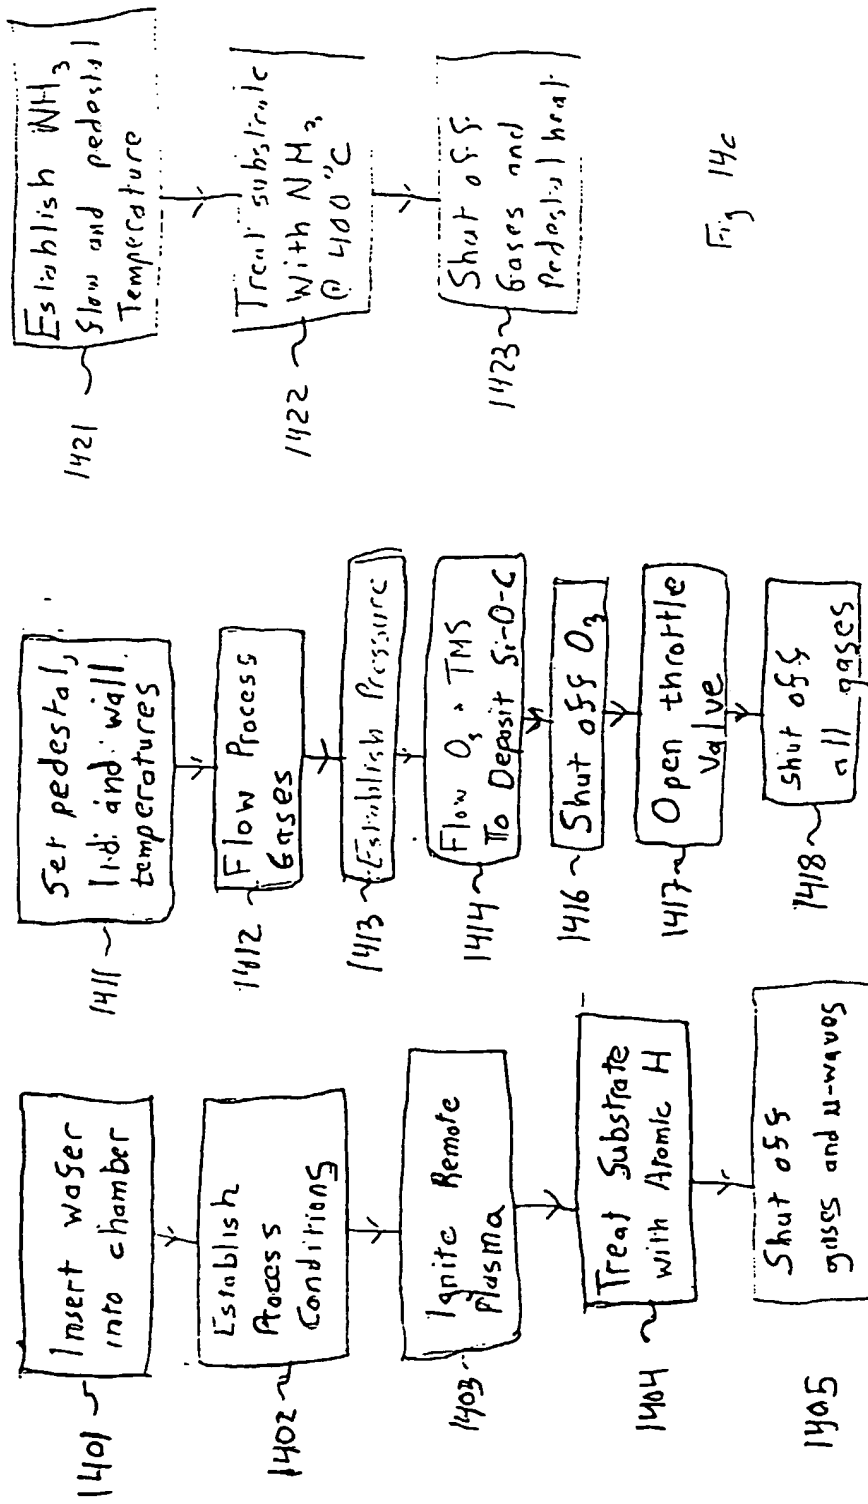 1401
Insert wafer
into chamber
1402
Establish
Process
Conditions
1403
Ignite Remote
Plasma
1404
Treat Substrate
with Atomic H
1405
Shut off
gases and μ-waves
1411
Set pedestal,
lid and wall
temperatures
1412
Flow Process
Gases
1413
Establish Pressure
1414
Flow O₃ + TMS
To Deposit Si-O-C
1416
Shut off O₃
1417
Open throttle
Valve
1418
Shut off
all gases
1421
Establish NH₃
flow and pedestal
Temperature
1422
Treat substrate
With NH₃
@ 400 °C
1423
Shut off
Gases and
Pedestal heat
Fig 14c